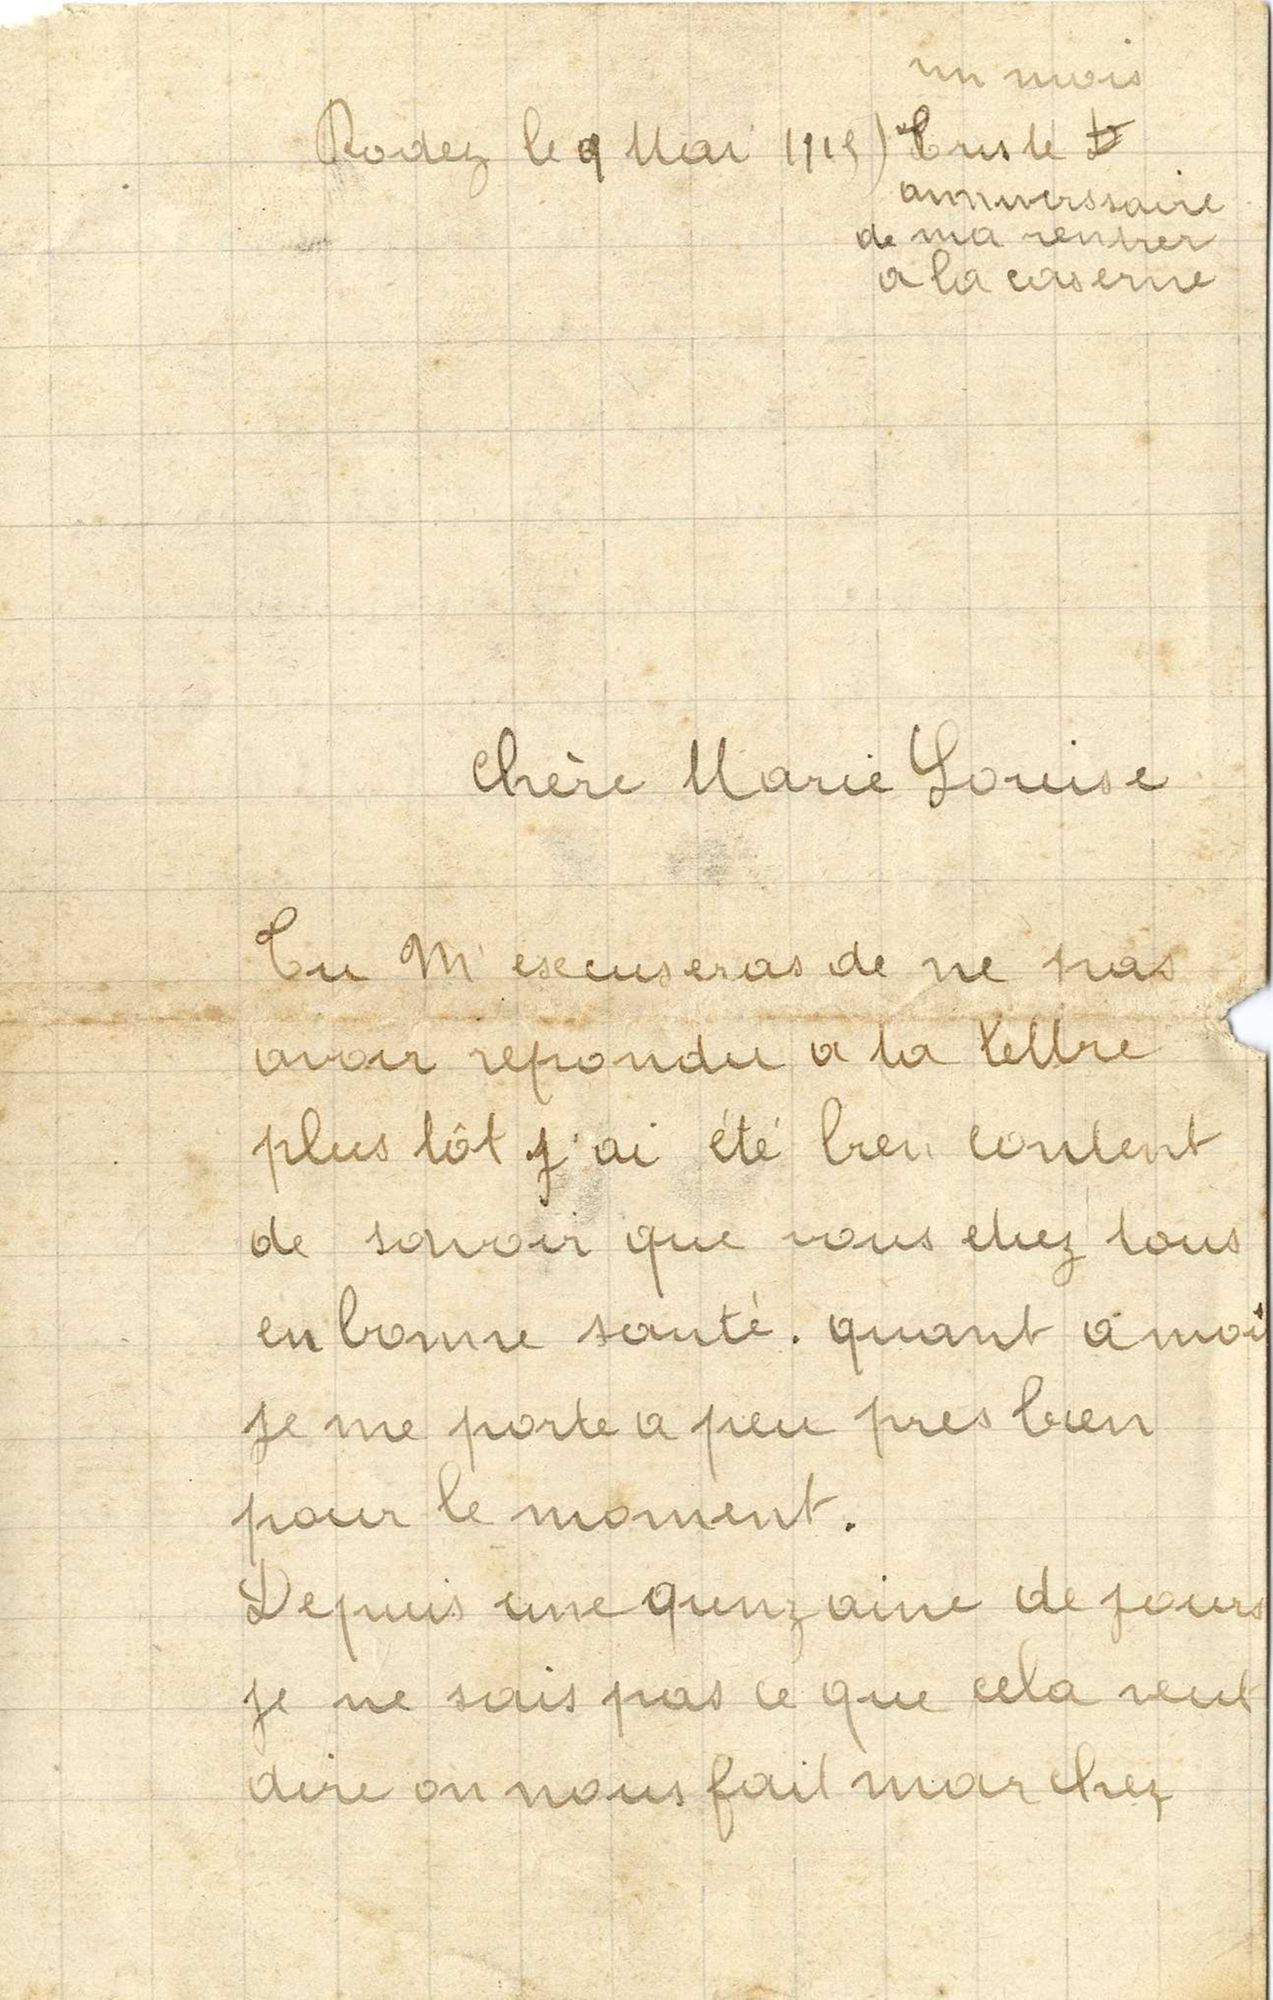 un mois
Rodez le 9 Mai 1915) Triste
anniverssaire
de ma rentrer
a la caserne
Chère Marie Louise
Tu M'escuseras de ne pas
avoir repondu a ta lettre
plus tôt j'ai été bien content
de savoir que vous etiez tous
en bonne santé. quant a moi
je me porte a peu pres bien
pour le moment.
Depuis une quinzaine de jours
je ne sais pas ce que cela veut
dire on nous fait marchez